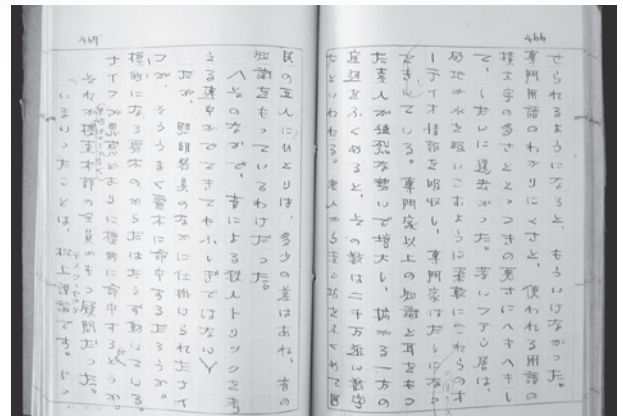 466
せられるようになると、もういけなかった。
専門用語のわかりにくさと、使われる用語の
横文字の多さととっつきの悪さにヘキエキし
て、しだいに遠去かった。若いファン層は、
砂地が水を吸いこむように柔軟にこれらのオ
ーディオ情報を吸収し、専門家はだしになっ
てきている。専門家以上の知識と耳をもつ
た素人が強烈な勢いで増大し、拡がる一方の
底辺をふくめると、その数は二千万近い数字
だといわれる。老人から
467
民の五人にひとりは、多少の差はあれ、音の
知識をもっているわけだった。
〈そのなかで、音による殺人トリックを考
える連中がでてきてもふしぎではない〉
だが、照明器具のなかに仕掛けられたナイ
フが、そううまく露木に命中するだろうか。
標的になる露木のからだはたえず動いている。
ナイフが思惑どおりに標的に命中するだろうか。
それが捜査本部の全員がもつ疑問だった。
「いまいったことは、机上